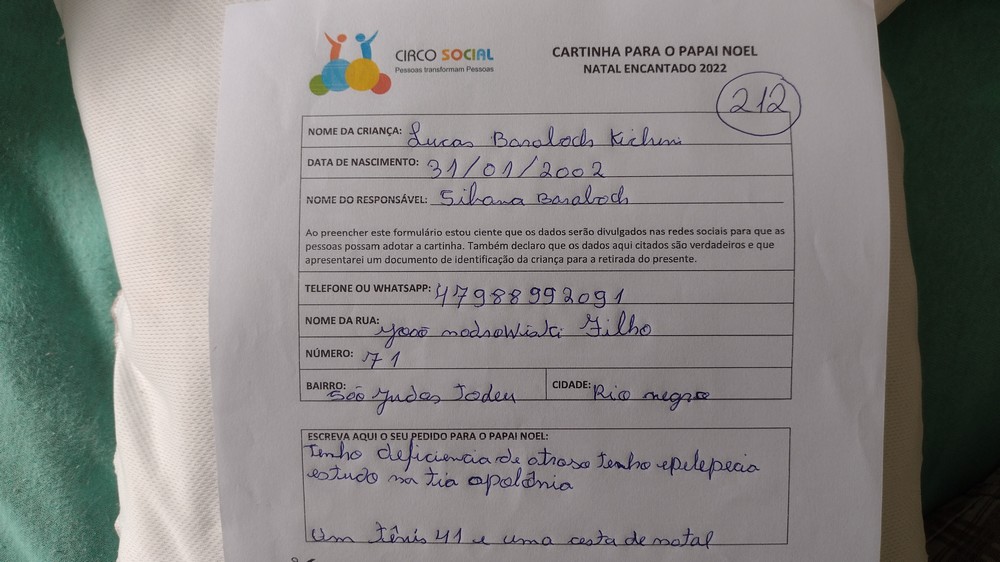 CIRCO SOCIAL
Pessoas transformam Pessoas
CARTINHA PARA O PAPAI NOEL
NATAL ENCANTADO 2022
212
NOME DA CRIANÇA: Lucas
DATA DE NASCIMENTO: 31/01/2002
NOME DO RESPONSÁVEL:
Ao preencher este formulário estou ciente que os dados serão divulgados nas redes sociais para que as
pessoas possam adotar a cartinha. Também declaro que os dados aqui citados são verdadeiros e que
apresentarei um documento de identificação da criança para a retirada do presente.
TELEFONE OU WHATSAPP: 47988992091
NOME DA RUA: Filho
NÚMERO: 71
BAIRRO: São Judas Tadeu CIDADE: Rio negro
ESCREVA AQUI O SEU PEDIDO PARA O PAPAI NOEL:
Tenho deficiencia de atraso tenho epelepecia
estudo na tia apolônia
Um tênis 41 e uma cesta de natal